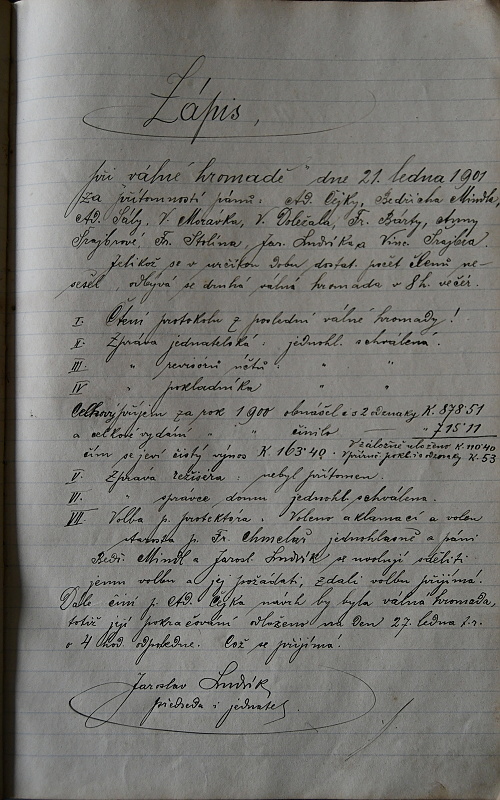 Zápis,
při "válné hromadě" dne 21. ledna 1901
za přítomnosti pánů: Ad. Čejky, Bedřicha Mindla,
Ad. Sály, V. Moravka, V. Dolečala, Fr. Barty, Anny
Šrajbrové, Fr. Stolína, Jar. Ludvíka, Vinc. Šrajbra.
Jelikož se v určitou dobu dostat. počet členů ne-
sešel, odbývá se druhá válná hromada v 8 h. večer.
I. Čtení protokolu z poslední válné hromady!
II. Zpráva jednatelská: jednohl. schválena.
III. " revisorů účtů: " "
IV " pokladníka " "
Celkový příjem za rok 1900 obnášel i s 2 denáky K 878·51
a celkové vydání " " " činilo " 715·11
čím se jeví čistý výnos K 163·40. V záložně uloženo K 110·40
V příruč. pokl. K 53
V. Zpráva režiséra: nebyl přítomen.
VI. " správce domu jednohl. schválena.
VII. Volba p. protektora. Voleno aklamací a volen
starosta p. Fr. Chmelař jednohlasně a páni
Bedř. Mindl a Jarosl. Ludvík se uvolují sděliti
jemu volbu a jej požádati, zdali volbu přijímá.
Dále činí p. Ad. Čejka návrh by byla válná hromada,
totiž její pokračování odloženo na den 27. ledna t.r.
o 4 hod. odpoledne. Což se přijímá.
Jaroslav Ludvík,
předseda i jednatel.